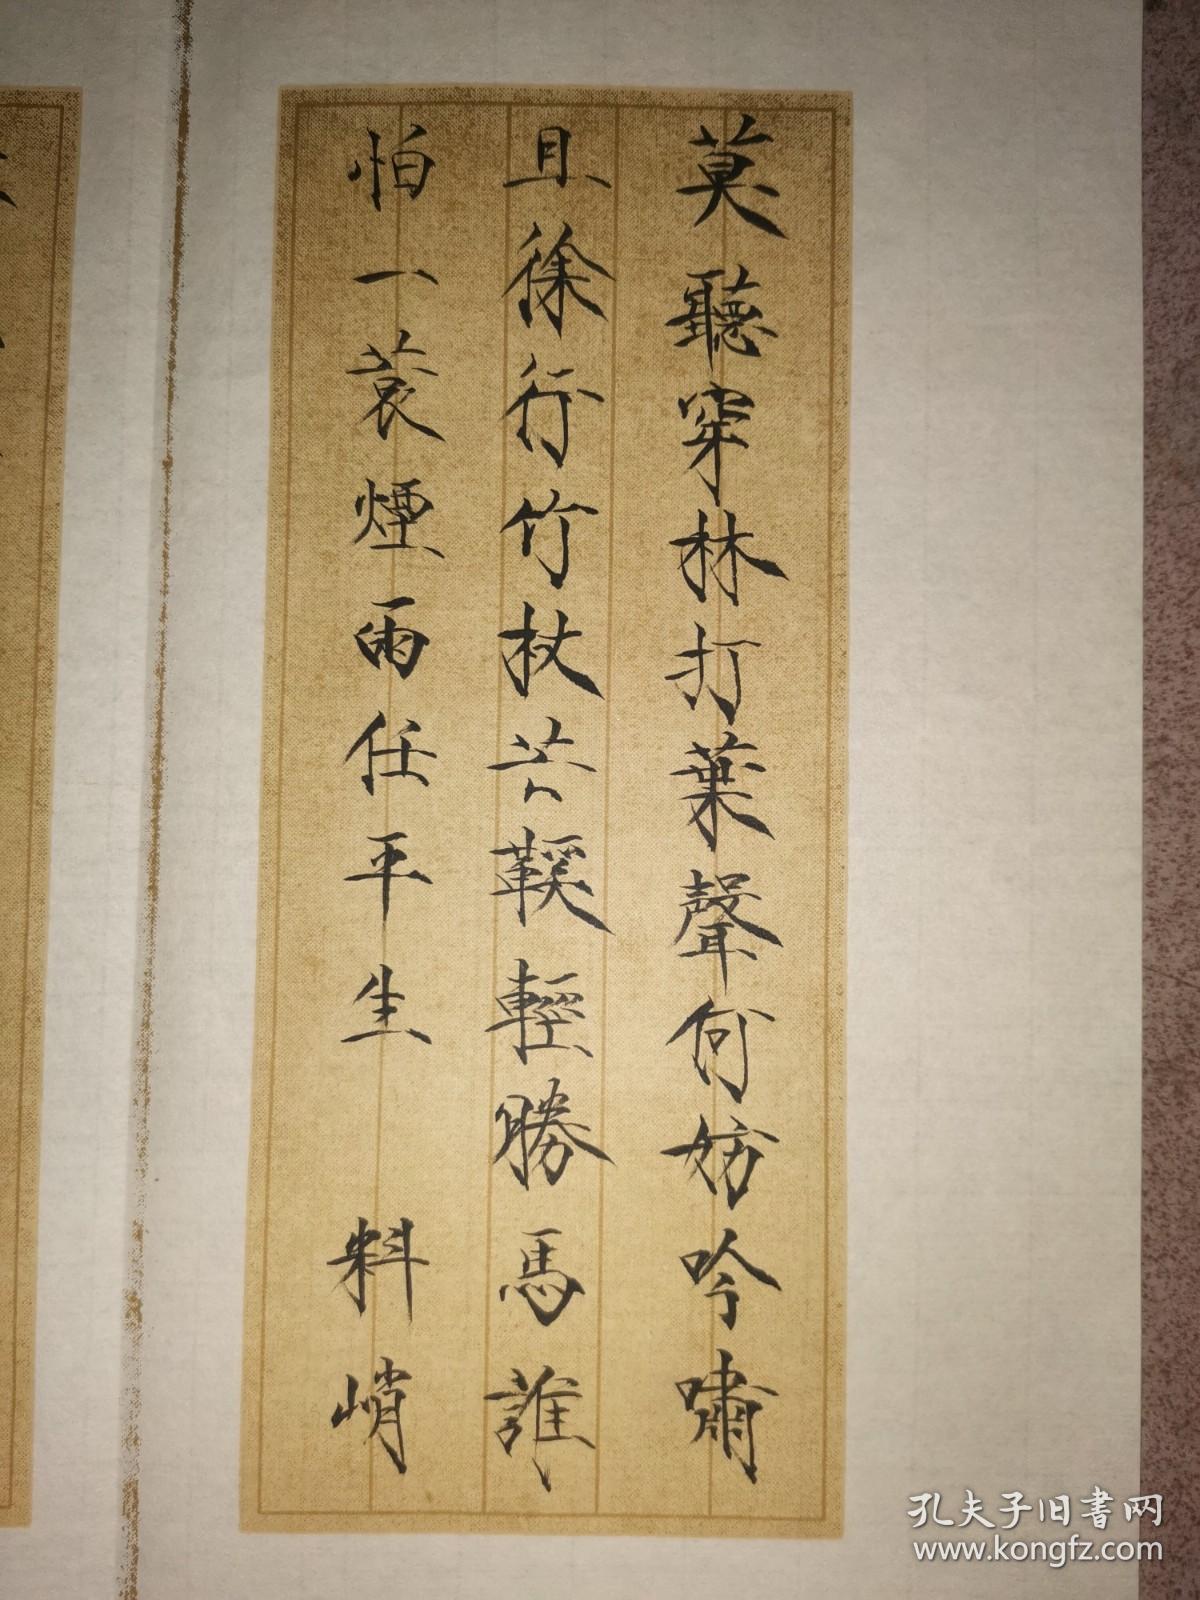 莫聽穿林打葉聲何妨吟嘯
且徐行竹杖芒鞵輕勝馬誰
怕一蓑煙雨任平生 料峭
孔夫子旧书网
www.kongfz.com